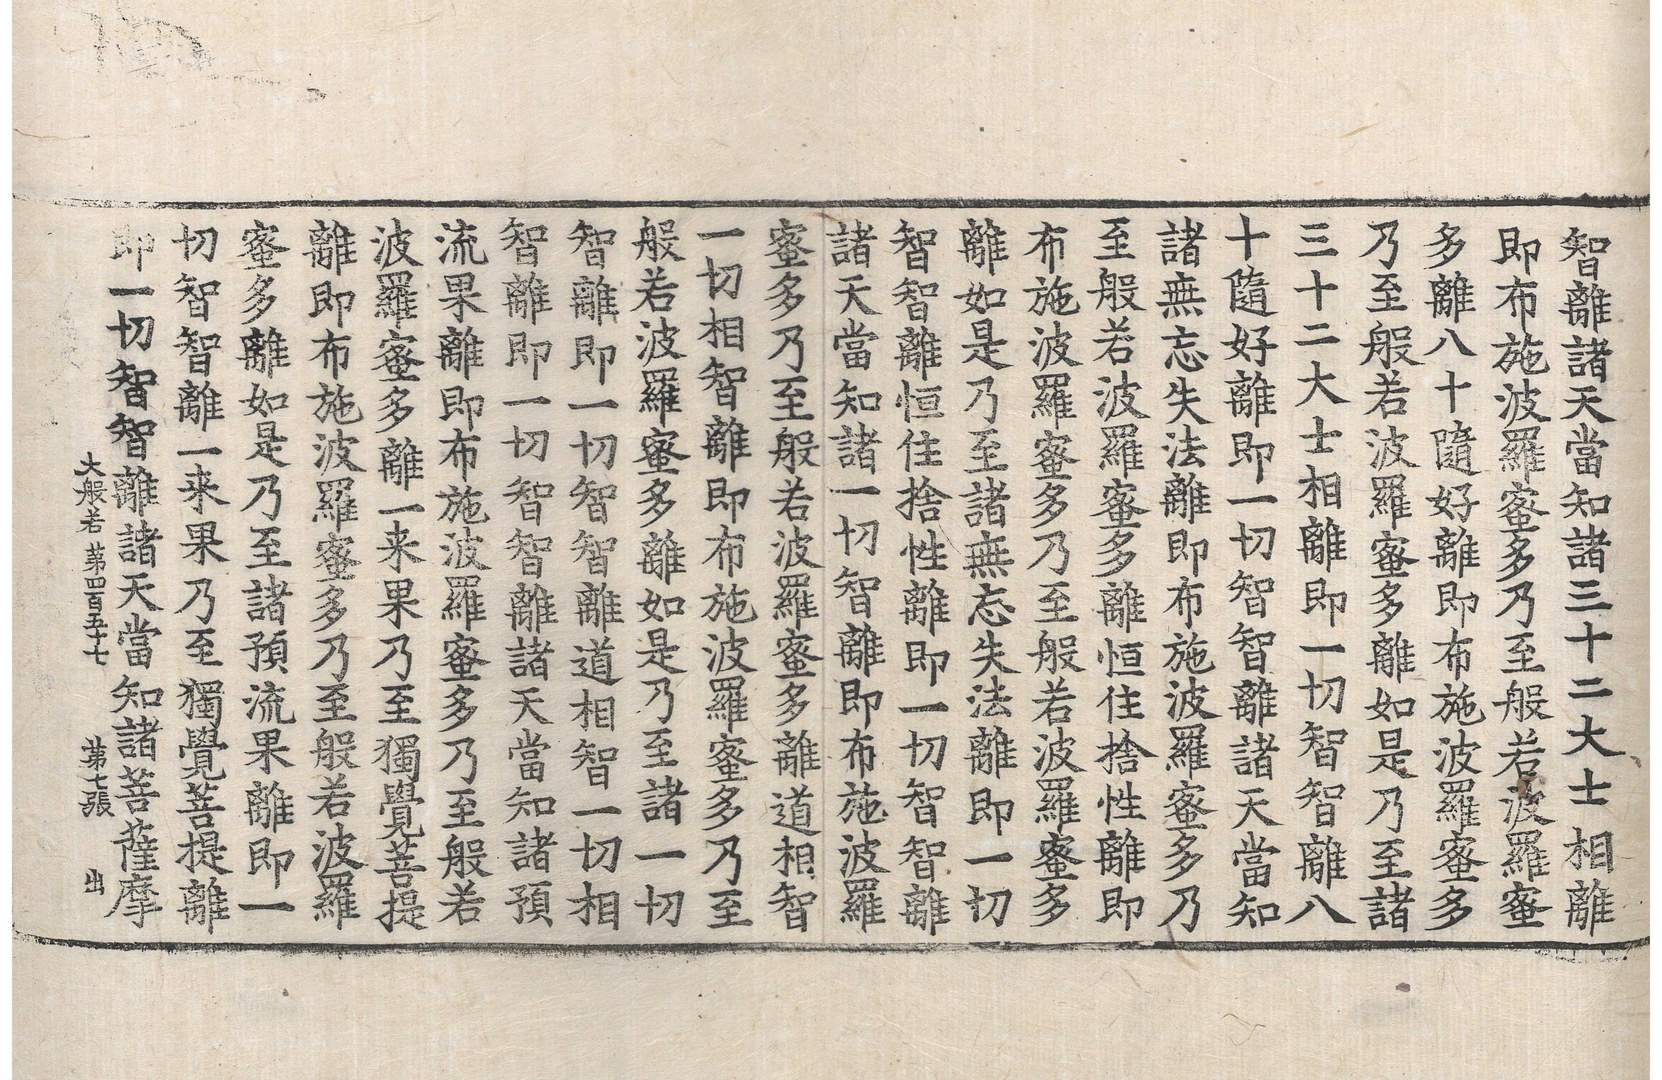 智離諸天當知諸三十二大士相離
即布施波羅蜜多乃至般若波羅蜜
多離八十隨好離即布施波羅蜜多
乃至般若波羅蜜多離如是乃至諸
三十二大士相離即一切智智離八
十隨好離即一切智智離諸天當知
諸無忘失法離即布施波羅蜜多乃
至般若波羅蜜多離恒住捨性離即
布施波羅蜜多乃至般若波羅蜜多
離如是乃至諸無忘失法離即一切
智智離恒住捨性離即一切智智離
諸天當知諸一切智離即布施波羅
蜜多乃至般若波羅蜜多離道相智
一切相智離即布施波羅蜜多乃至
般若波羅蜜多離如是乃至諸一切
智離即一切智智離道相智一切相
智離即一切智智離諸天當知諸預
流果離即布施波羅蜜多乃至般若
波羅蜜多離一来果乃至獨覺菩提
離即布施波羅蜜多乃至般若波羅
蜜多離如是乃至諸預流果離即一
切智智離一来果乃至獨覺菩提離
即一切智智離諸天當知諸菩薩摩
大般若 第四百五十七 第七張 出